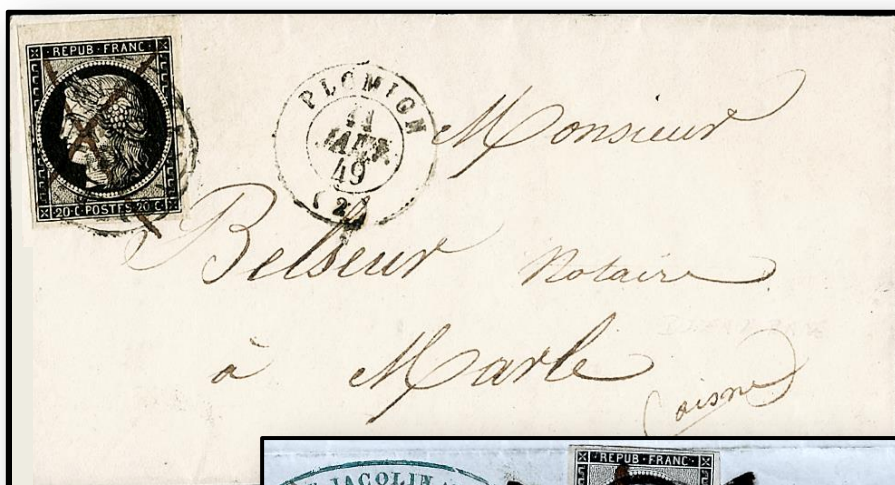 REPUB · FRANC
20 · C · POSTES · 20 · C
PLOMION
11
JANV.
49
(2)
Monsieur
Belseur Notaire
à Marle
(aisne)
JACOLIN
REPUB · FRANC